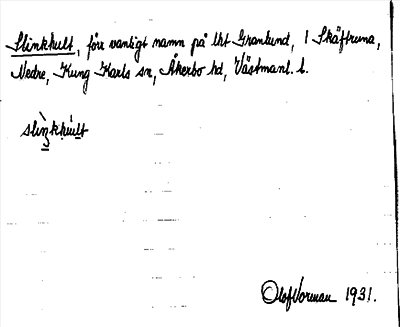 Slinkhult, förr vanligt namn på lht Granlund, 1 Skäftruna,
Nedre, Kung Karls sn, Åkerbo hd, Västmanl. l.
slìŋkhúlt
Olof Norman 1931.